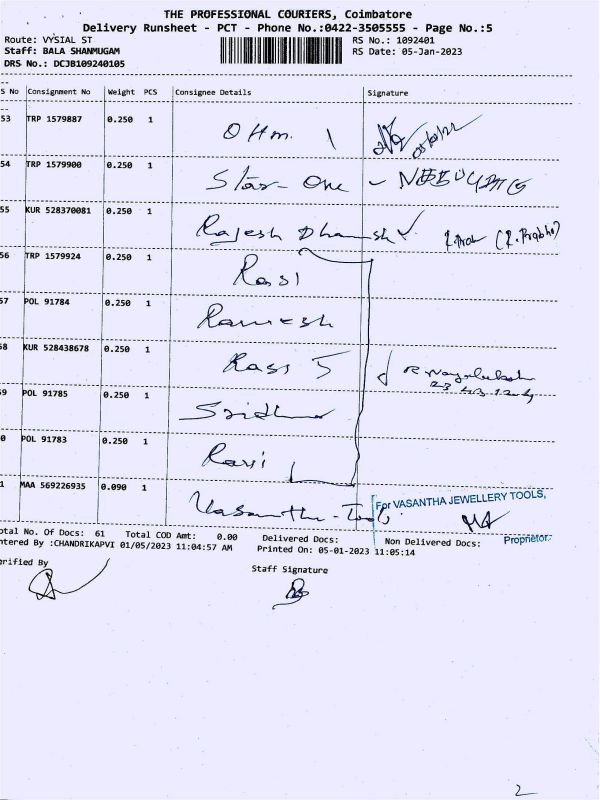 THE PROFESSIONAL COURIERS, Coimbatore
Delivery Runsheet - PCT - Phone No.:0422-3505555 - Page No.:5
Route: VYSIAL ST
RS No.: 1092401
Staff: BALA SHANMUGAM
RS Date: 05-Jan-2023
DRS No.: DCJB109240105
S No Consignment No Weight PCS Consignee Details Signature
53 TRP 1579887 0.250 1 Ohm. 1
54 TRP 1579900 0.250 1 Star-One -
55 KUR 528370081 0.250 1 Rajesh (R.Prabhu)
56 TRP 1579924 0.250 1 Rasi
57 POL 91784 0.250 1 Ramesh
58 KUR 528438678 0.250 1 Rasi
59 POL 91785 0.250 1 Sridhar
0 POL 91783 0.250 1 Ravi
1 MAA 569226935 0.090 1 Vasantha-Tools
For VASANTHA JEWELLERY TOOLS,
Proprietor.
otal No. Of Docs: 61 Total COD Amt: 0.00 Delivered Docs: Non Delivered Docs:
ntered By :CHANDRIKAPVI 01/05/2023 11:04:57 AM Printed On: 05-01-2023 11:05:14
erified By
Staff Signature
2